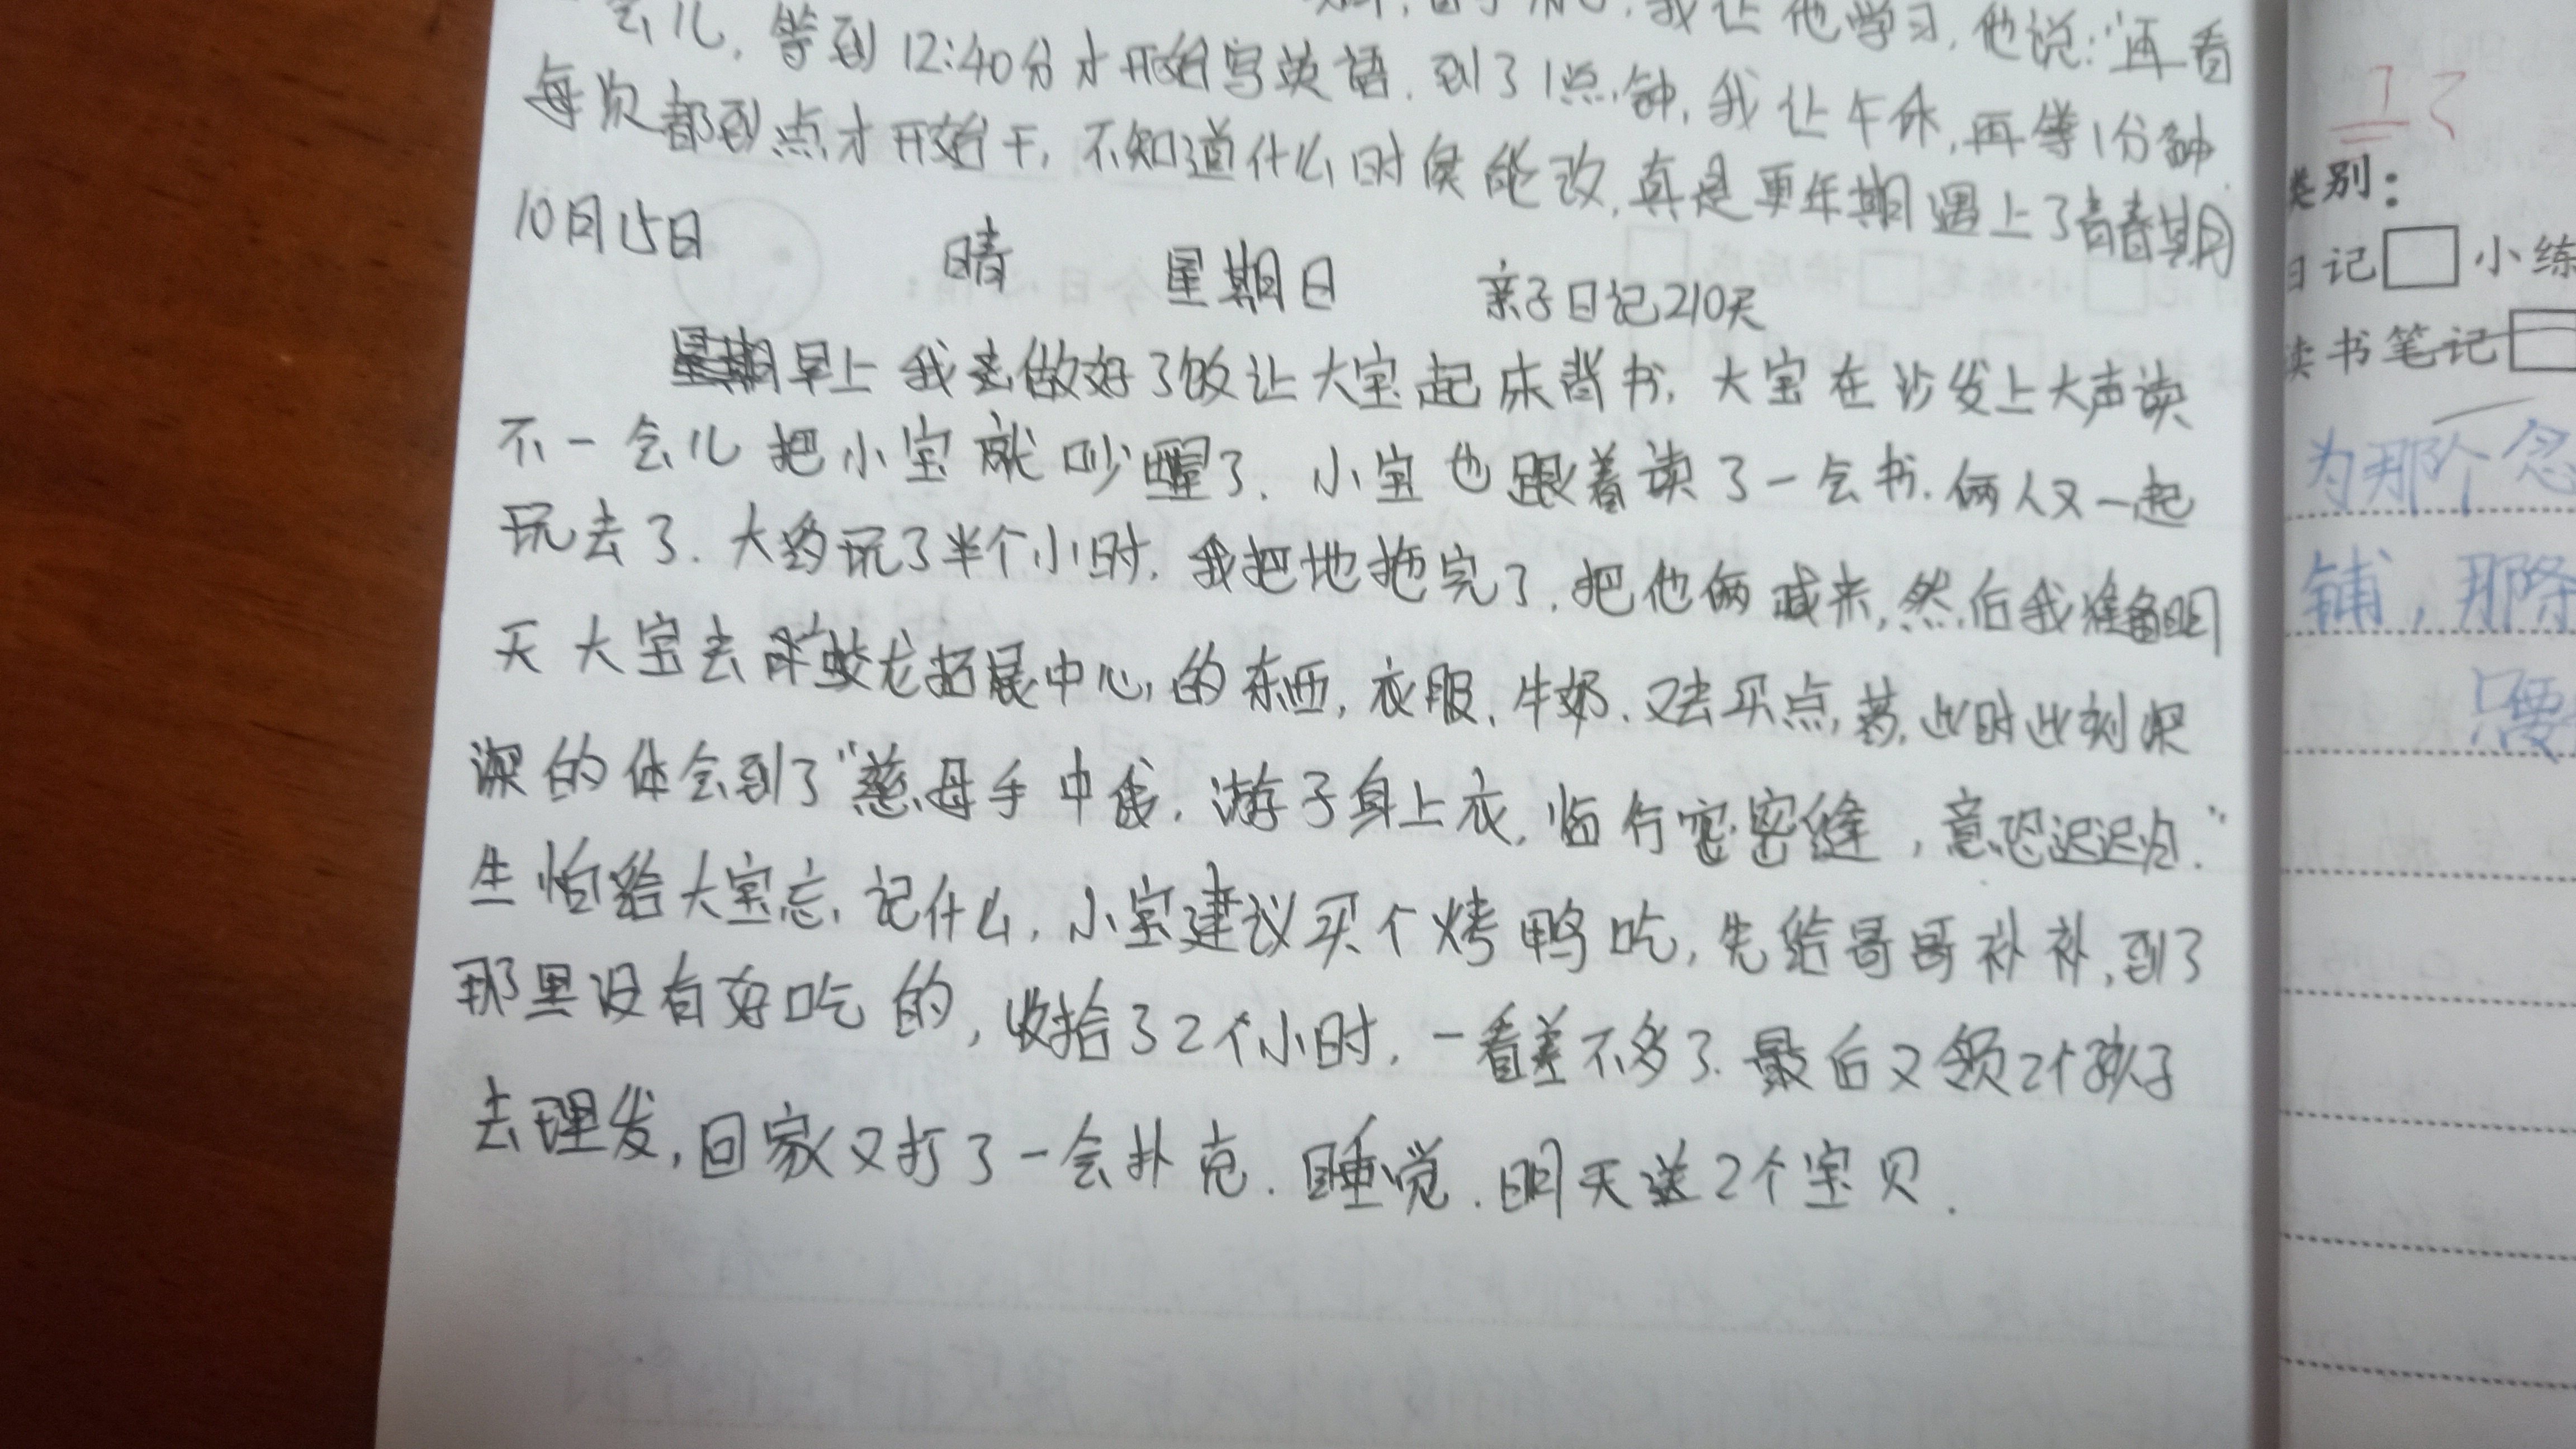 我让他学习,他说:“再看
会儿,等到12:40分才开始写英语.到了1点钟,我让午休,再等1分钟
每次都到点才开始干,不知道什么时候能改,真是更年期遇上了青春期
10月15日 晴 星期日 亲子日记210天
早上我去做好了饭让大宝起床背书.大宝在沙发上大声读
不一会儿把小宝就吵醒了.小宝也跟着读了一会书.俩人又一起
玩去了.大约玩了半个小时.我把地拖完了.把他俩喊来,然后我准备明
天大宝去蛟龙拓展中心的东西,衣服、牛奶.又去买点药,此时此刻深
深的体会到了“慈母手中线,游子身上衣,临行密密缝,意恐迟迟归.”
生怕给大宝忘记什么,小宝建议买个烤鸭吃,先给哥哥补补,到了
那里没有好吃的,收拾了2个小时,一看差不多了.最后又领2个孩子
去理发,回家又打了一会扑克.睡觉.明天送2个宝贝.
类别:
日记 小练
读书笔记
为那个
铺,那
只要